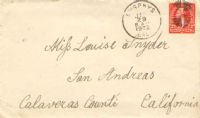 MURPHYS
Miss Louise Snyder
San Andreas
Calaveras County California